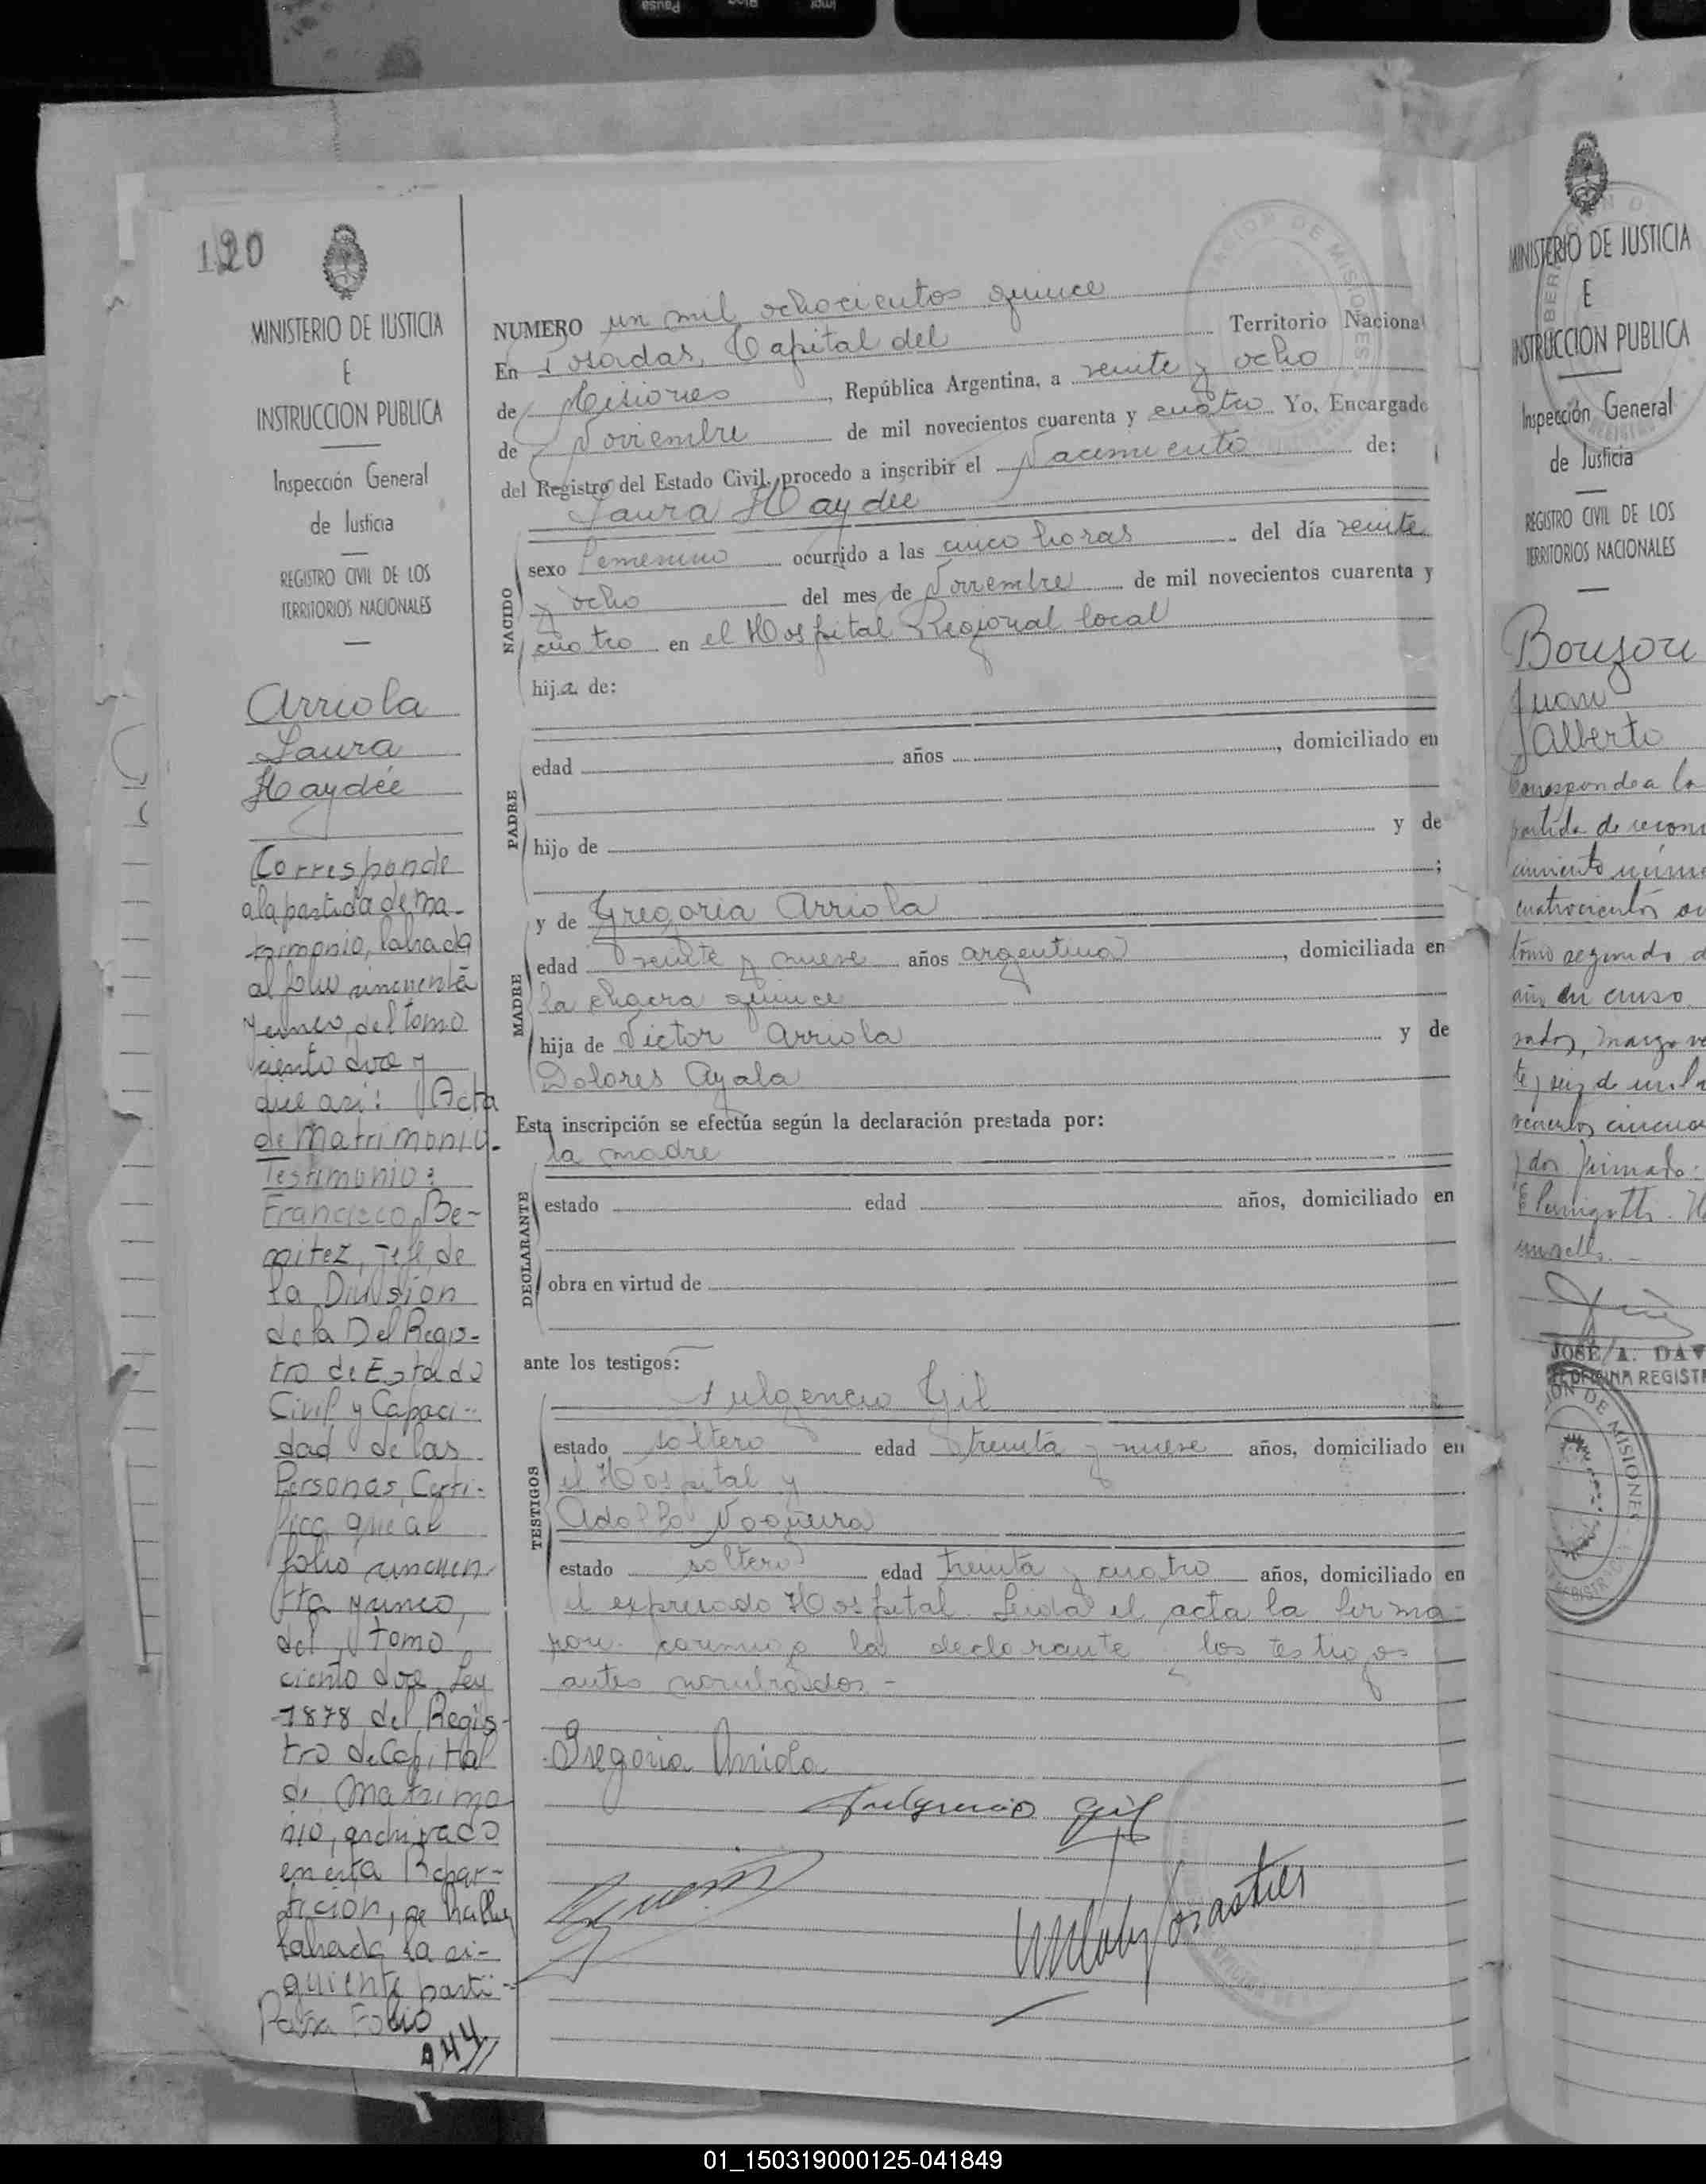 120
MINISTERIO DE JUSTICIA
E
INSTRUCCION PUBLICA
Inspección General
de Justicia
REGISTRO CIVIL DE LOS
TERRITORIOS NACIONALES
Arriola
Laura
Haydée
Corresponde
a la partida de ma-
trimonio, labrada
al folio cincuenta
y cinco, del tomo
ciento doce y
que asi: Acta
de Matrimonio.
Testimonio:
Francisco Be-
nitez, Jefe de
la Division
de la Del Regis-
tro de Estado
Civil y Capaci-
dad de las
Personas, Certi-
fica que al
folio cincuen
ta y cinco,
del tomo
ciento doce Ley
1878 del Regis-
tro de Capital
de Matrimo
nio, archivado
en esta Repar-
tición, se halla
labrada la si-
guiente parti-
Pasa Folio
944
NUMERO un mil ochocientos quince
En Posadas, Capital del Territorio Nacional
de Misiones, República Argentina, a veinte y ocho
de Noviembre de mil novecientos cuarenta y cuatro Yo, Encargado
del Registro del Estado Civil, procedo a inscribir el Nacimiento de:
Laura Haydée
NACIDO
sexo femenino ocurrido a las cinco horas del día veinte
y ocho del mes de Noviembre de mil novecientos cuarenta y
cuatro en el Hospital Regional local
hija de:
PADRE
edad años , domiciliado en
hijo de y de
;
MADRE
y de Gregoria Arriola
edad veinte y nueve años argentina, domiciliada en
la chacra quince
hija de Victor Arriola y de
Dolores Ayala
Esta inscripción se efectúa según la declaración prestada por:
la madre
DECLARANTE
estado edad años, domiciliado en
obra en virtud de
ante los testigos:
TESTIGOS
Fulgencio Gil
estado soltero edad treinta y nueve años, domiciliado en
el Hospital y
Adolfo Nogueira
estado soltero edad treinta y cuatro años, domiciliado en
el expresado Hospital. Leida el acta la firma-
ron conmigo la declarante y los testigos
antes nombrados.-
Gregoria Arriola
Fulgencio Gil
MINISTERIO DE JUSTICIA
E
INSTRUCCION PUBLICA
Inspección General
de Justicia
REGISTRO CIVIL DE LOS
TERRITORIOS NACIONALES
Juan
Alberto
Corresponde a la
partida de
tomo segundo
año en curso
JOSÉ A.
01_150319000125-041849